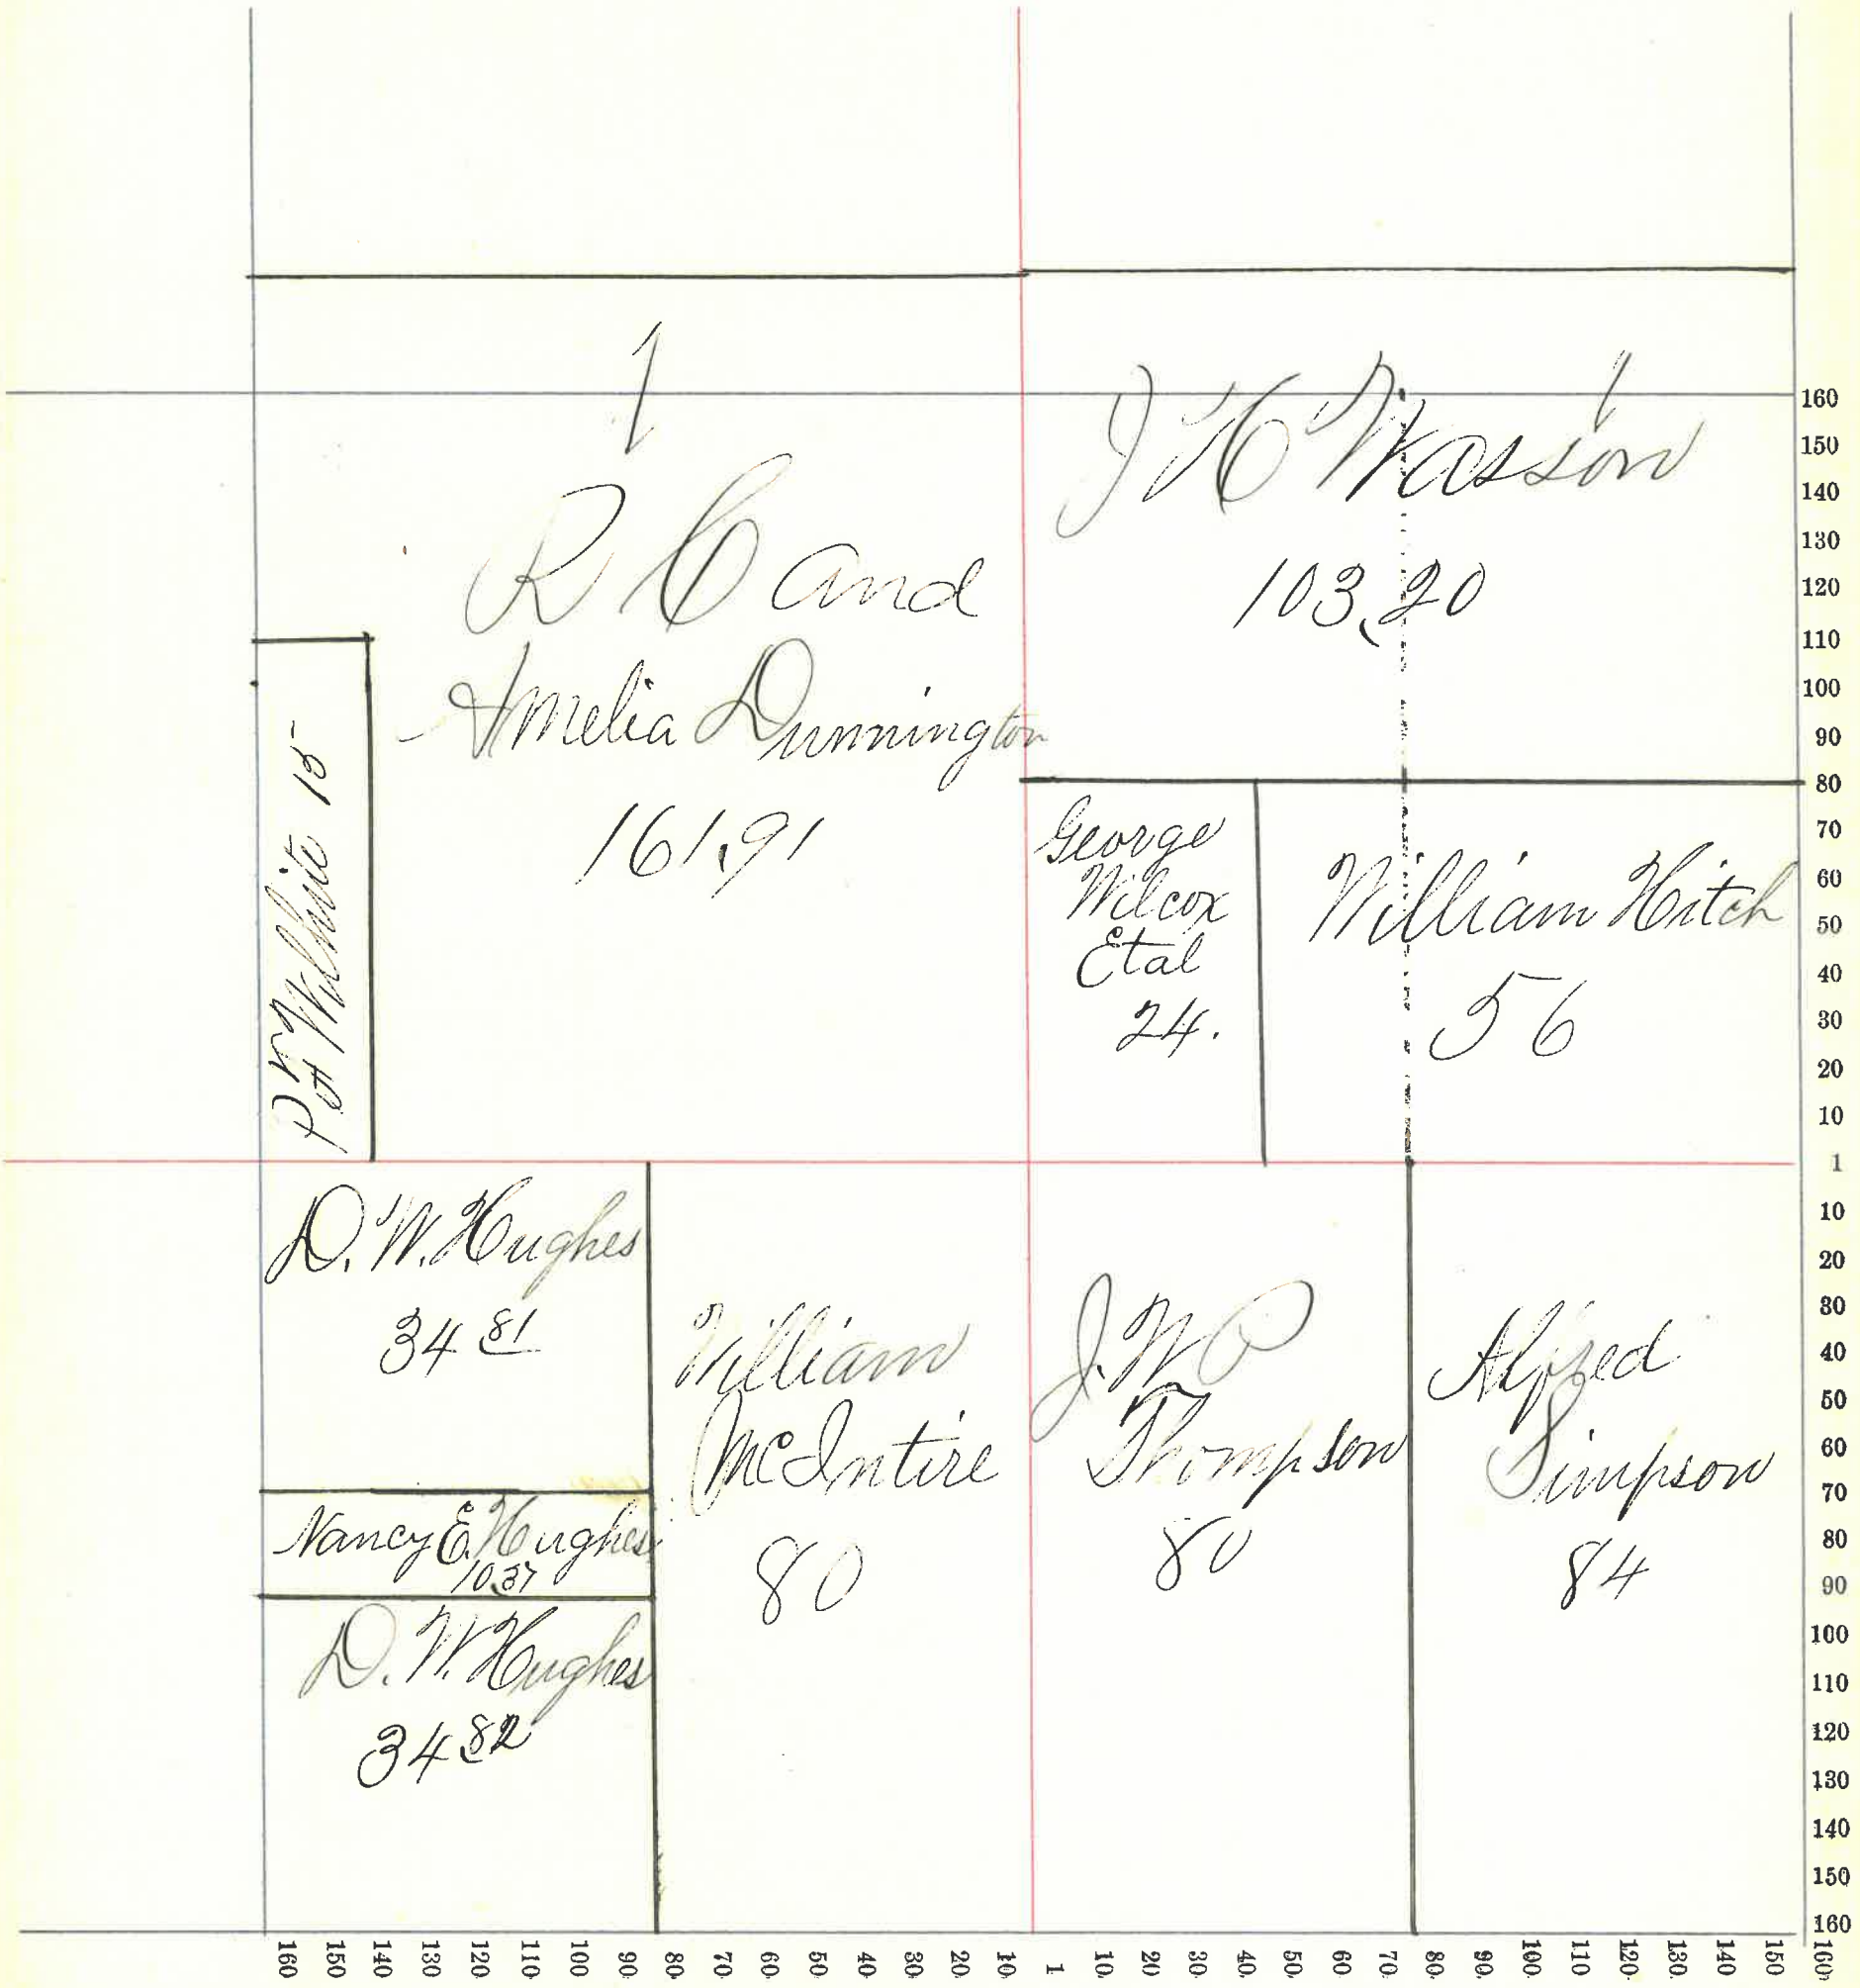 1
R C and
Amelia Dunnington
161.91
J H Wasson
103.20
P H Wilhite 15
George
Wilcox
Etal
24.
William Hitch
56
D. W. Hughes
34 81
Nancy E. Hughes
10.37
D. W. Hughes
34 82
William
McIntire
80
J. W. P
Thompson
80
Alfred
Simpson
84
160
150
140
130
120
110
100
90
80
70
60
50
40
30
20
10
1
10
20
30
40
50
60
70
80
90
100
110
120
130
140
150
160
160 150 140 130 120 110 100 90 80 70 60 50 40 30 20 10 1 10 20 30 40 50 60 70 80 90 100 110 120 130 140 150 160